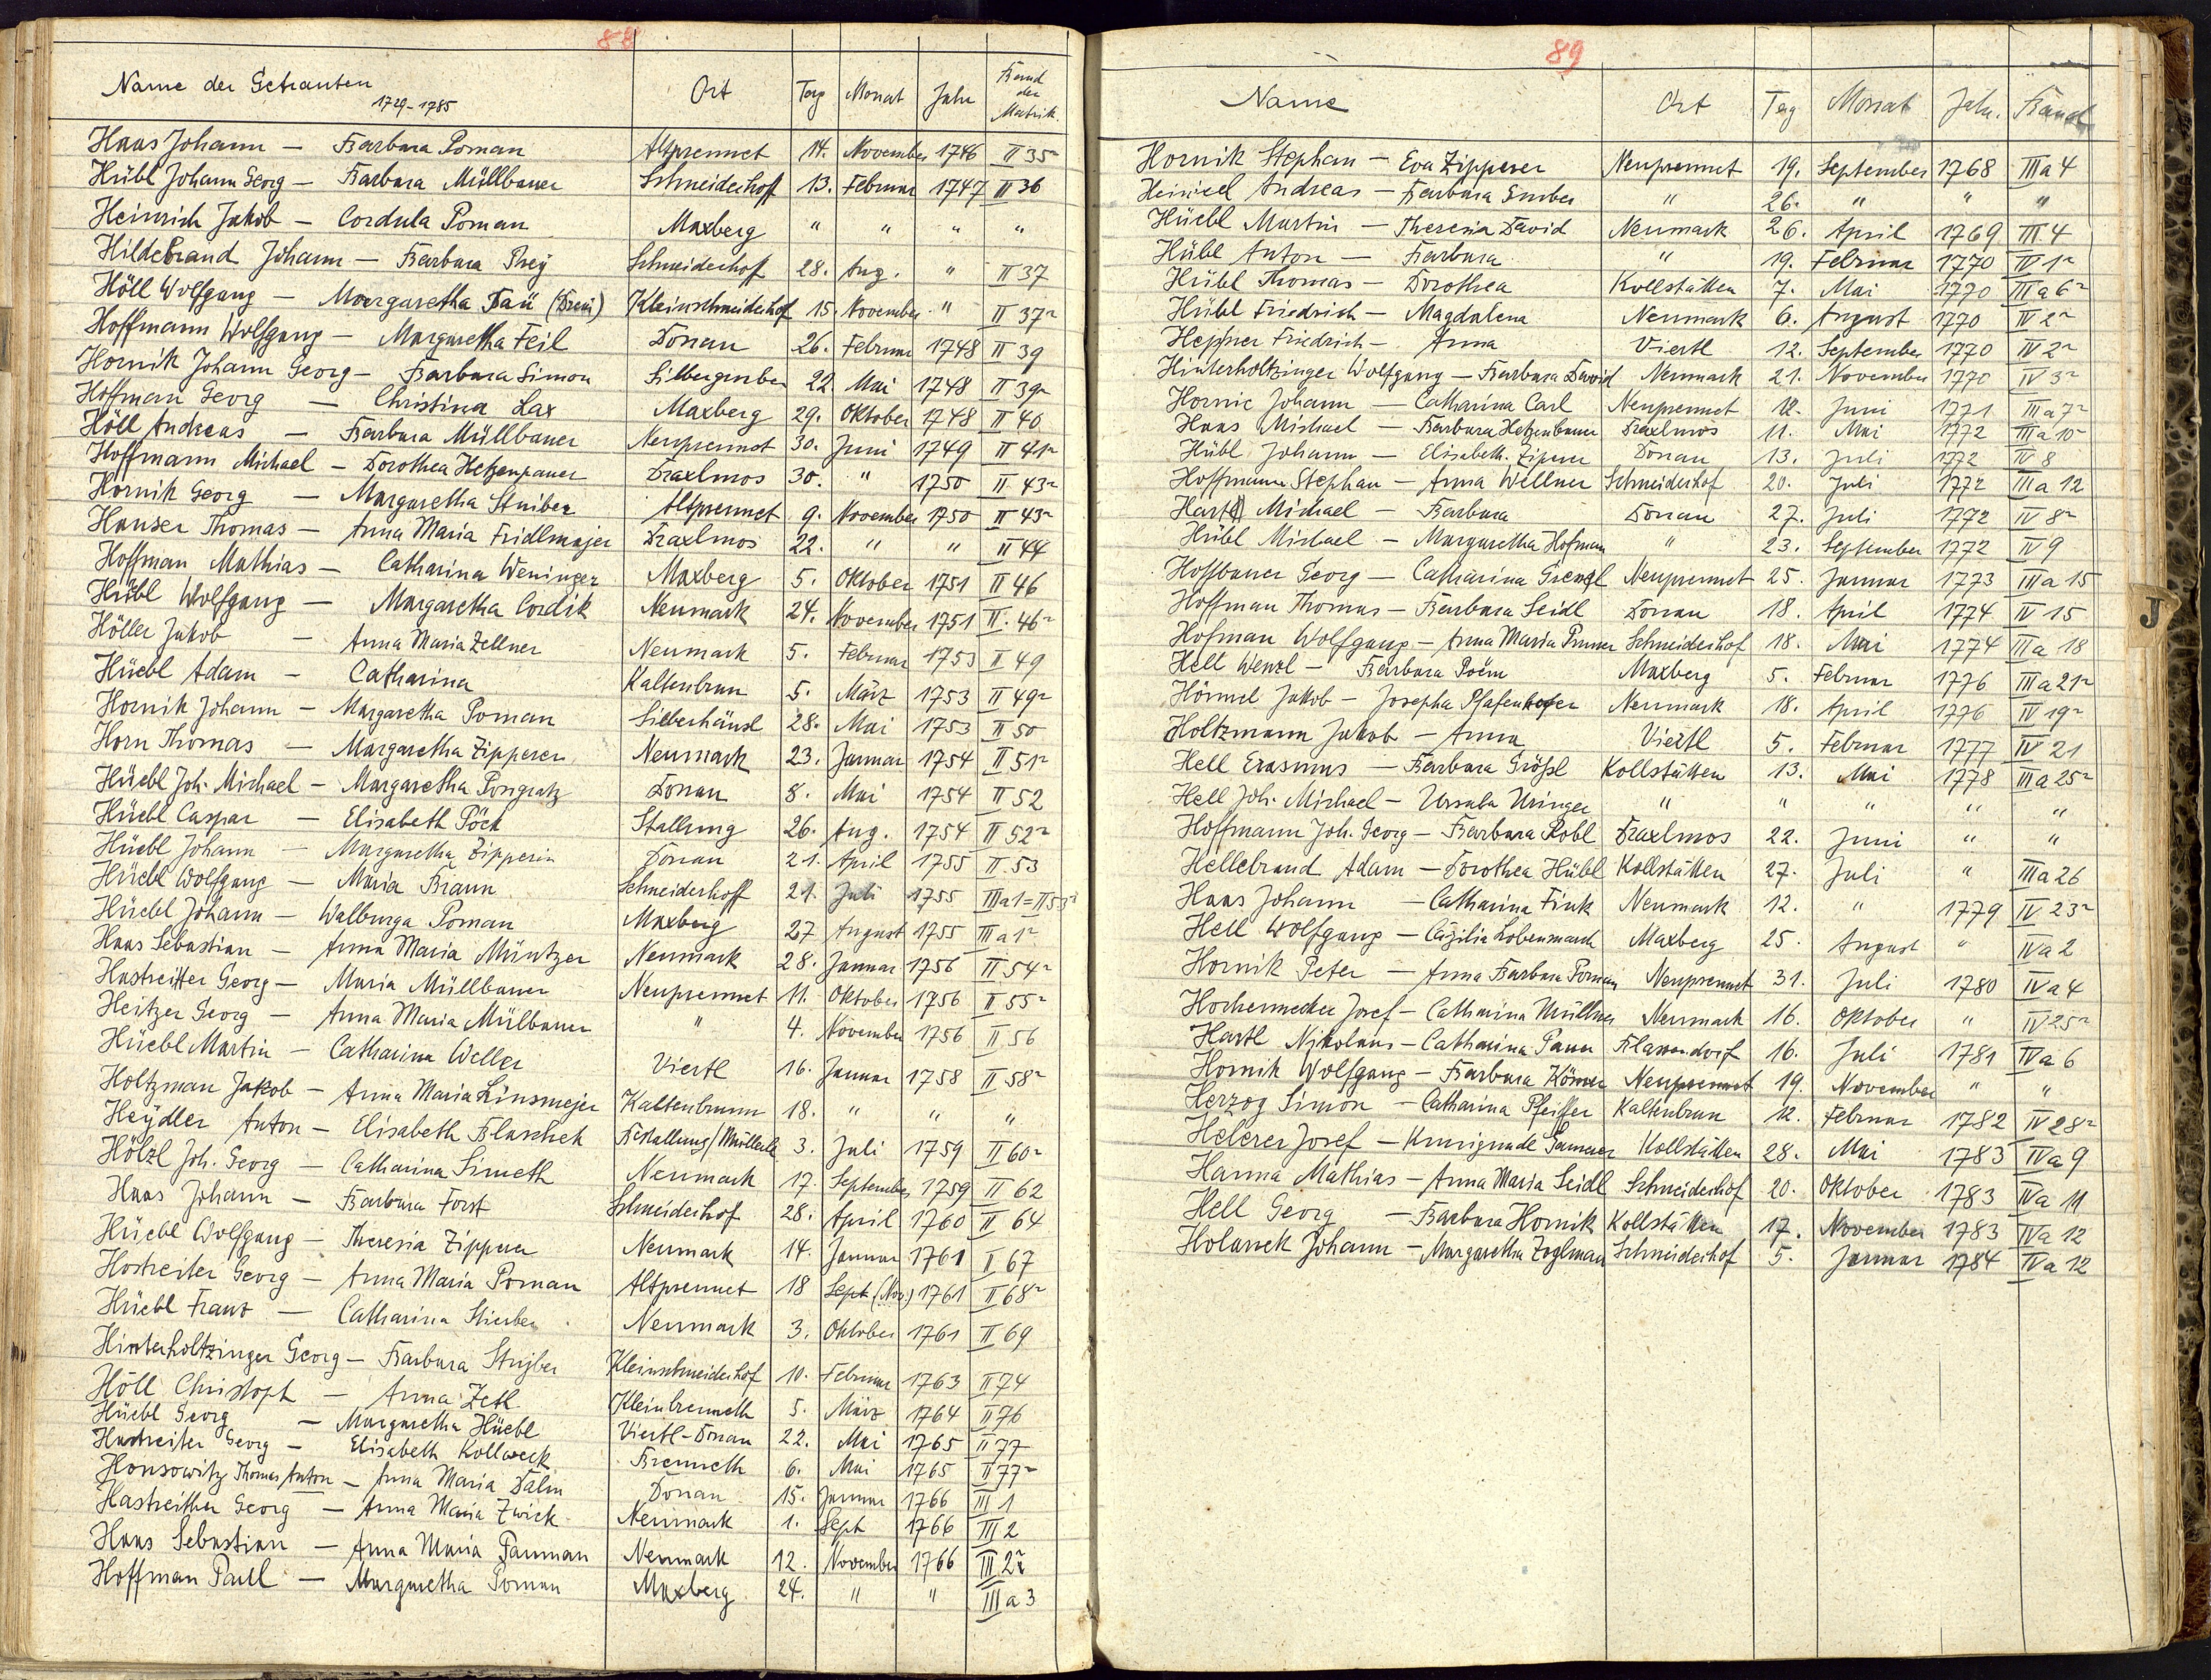 88
Name der Getrauten 1729-1785 Ort Tag Monat Jahr Band der Matrik.
Haas Johann — Barbara Poman Altprennet 14. November 1746 II 35r
Hübl Johann Georg — Barbara Müllbauer Schneiderhoff 13. Februar 1747 II 36
Heinrich Jakob — Cordula Poman Maxberg " " " "
Hildebrand Johann — Barbara Prey Schneiderhoff 28. Aug. " II 37
Höll Wolfgang — Margaretha Daü Kleinschneiderhof 15. November " II 37r
Hoffmann Wolfgang — Margaretha Feil Donau 26. Februar 1748 II 39
Hornik Johann Georg — Barbara Simon Silbergruber 22 Mai 1748 II 39r
Hoffman Georg — Christina Lax Maxberg 29. Oktober 1748 II 40
Höll Andreas — Barbara Müllbauer Neuprennet 30. Juni 1749 II 41r
Hoffmann Michael — Dorothea Hetzenpauer Braxlmos 30. " 1750 II 43r
Hornik Georg — Margaretha Stuiber Altprennet 9. November 1750 II 43r
Hauser Thomas — Anna Maria Fridlmajer Braxlmos 22. " " II 44
Hoffman Mathias — Catharina Weninger Maxberg 5. Oktober 1751 II 46
Hübl Wolfgang — Margaretha Cordik Neumark 24. November 1751 II. 46r
Höller Jakob — Anna Maria Zellner Neumark 5. Februar 1753 II 49
Hüebl Adam — Catharina Kaltenbrun 5. März 1753 II 49r
Hornik Johann — Margaretha Poman Silberhäusl 28. Mai 1753 II 50
Horn Thomas — Margaretha Zipperer Neumark 23. Januar 1754 II 51r
Hüebl Joh. Michael — Margaretha Pongratz Donau 8. Mai 1754 II 52
Hüebl Caspar — Elisabeth Pöck Stallung 26. Aug. 1754 II 52r
Hüebl Johann — Margaretha Zipperin Donau 21. April 1755 II. 53
Hüebl Wolfgang — Maria Braun Schneiderhoff 21. Juli 1755 IIIa1 = II 53r
Hüebl Johann — Walburga Poman Maxberg 27 August 1755 IIIa1r
Haas Sebastian — Anna Maria Müntzer Neumark 28. Januar 1756 II 54r
Hastreitter Georg — Maria Müllbauer Neuprennet 11. Oktober 1756 II 55r
Heitzer Georg — Anna Maria Mülbauer " 4. November 1756 II 56
Hüebl Martin — Catharina Weller Viertl 16. Januar 1758 II 58r
Holtzman Jakob — Anna Maria Linsmejer Kaltenbrunn 18. " " "
Heydler Anton — Elisabeth Blaschek Bestallung/Müllerk 3. Juli 1759 II 60r
Hölzl Joh. Georg — Catharina Simeth Neumark 17. September 1759 II 62
Haas Johann — Barbara Forst Schneiderhof 28. April 1760 II 64
Hüebl Wolfgang — Theresia Zipperer Neumark 14. Januar 1761 II 67
Hostreiter Georg — Anna Maria Poman Altprennet 18 Sept (Nov.) 1761 II 68r
Hüebl Franz — Catharina Stieber Neumark 3. Oktober 1761 II 69
Hinterholtzinger Georg — Barbara Stujber Kleinschneiderhof 10. Februar 1763 II 74
Höll Christoph — Anna Zetl Kleinbrenneth 5. März 1764 II 76
Hüebl Georg — Margaretha Hüebl Viertl-Donau 22. Mai 1765 II 77
Hastreiter Georg — Elisabeth Kollweck Brenneth 6. Mai 1765 II 77r
Honsowitz Thomas Anton — Anna Maria Dalin Donau 15. Januar 1766 III 1
Hastreither Georg — Anna Maria Zwick Neumark 1. Sept 1766 III 2
Haas Sebastian — Anna Maria Pauman Neumark 12. November 1766 III 2r
Hoffman Paul — Margaretha Poman Maxberg 24. " " III a 3
89
Name Ort Tag Monat Jahr. Band
Hornik Stephan — Eva Zipperer Neuprennet 19. September 1768 IIIa 4
Heinisel Andreas — Barbara Gruber " 26. " " "
Hüebl Martin — Theresia David Neumark 26. April 1769 III 4
Hübl Anton — Barbara " 19. Februar 1770 IV 1r
Hübl Thomas — Dorothea Kollstätten 7. Mai 1770 IIIa 6r
Hübl Friedrich — Magdalena Neumark 6. August 1770 IV 2r
Heppner Friedrich — Anna Viertl 12. September 1770 IV 2r
Hinterholtzinger Wolfgang — Barbara David Neumark 21. November 1770 IV 3r
Hornic Johann — Catharina Carl Neuprennet 12. Juni 1771 IIIa 7r
Haas Michael — Barbara Hetzenbauer Braxlmos 11. Mai 1772 IIIa 10
Hübl Johann — Elisabeth Ziperer Donau 13. Juli 1772 IV 8
Hoffmann Stephan — Anna Wellner Schneiderhof 20. Juli 1772 IIIa 12
Hartl Michael — Barbara Donau 27. Juli 1772 IV 8r
Hübl Michael — Margaretha Hofman " 23. September 1772 IV 9
Hoffbauer Georg — Catharina Grenzl Neuprennet 25. Januar 1773 IIIa 15
Hoffman Thomas — Barbara Seidl Donau 18. April 1774 IV 15
Hofman Wolfgang — Anna Maria Pruner Schneiderhof 18. Mai 1774 IIIa 18
Hell Wenzl — Barbara Poëm Maxberg 5. Februar 1776 IIIa 21r
Hörmel Jakob — Josepha Pfafenhofer Neumark 18. April 1776 IV 19r
Holtzmann Jakob — Anna Viertl 5. Februar 1777 IV 21
Hell Erasmus — Barbara Größl Kollstätten 13. Mai 1778 IIIa 25r
Hell Joh. Michael — Ursula Uringer " " " " "
Hoffmann Joh. Georg — Barbara Robl Braxlmos 22. Juni " "
Hellebrand Adam — Dorothea Hübl Kollstätten 27. Juli " IIIa 26
Haas Johann — Catharina Fink Neumark 12. " 1779 IV 23r
Hell Wolfgang — Cäzilia Lobenmarch Maxberg 25. August " IVa 2
Hornik Peter — Anna Barbara Poman Neuprennet 31. Juli 1780 IVa 4
Hochermecker Josef — Catharina Müllner Neumark 16. Oktober " IV 25r
Hartl Nikolaus — Catharina Pauer Flassendorf 16. Juli 1781 IVa 6
Hornik Wolfgang — Barbara Körner Neuprennet 19. November " "
Herzog Simon — Catharina Pfeiffer Kaltenbrun 12. Februar 1782 IV 28r
Helerer Josef — Kunigunde Sammer Kollstätten 28. Mai 1783 IVa 9
Hanna Mathias — Anna Maria Seidl Schneiderhof 20. Oktober 1783 IVa 11
Hell Georg — Barbara Hornik Kollstätten 17. November 1783 IVa 12
Holanek Johann — Margaretha Zoglman Schneiderhof 5. Januar 1784 IVa 12
J